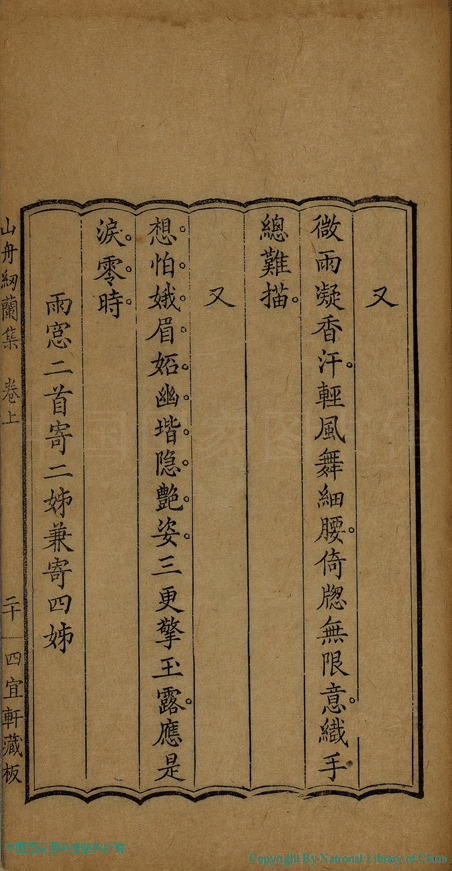 又
微雨凝香汗輕風舞細腰倚牕無限意纎手
總難描
又
想怕娥眉妬幽堦隐艶姿三更擎玉露應是
淚零時
雨窓二首寄二姊兼寄四姊
山舟紉蘭集 卷上 二十 四宜軒藏板
Copyright By National Library of China